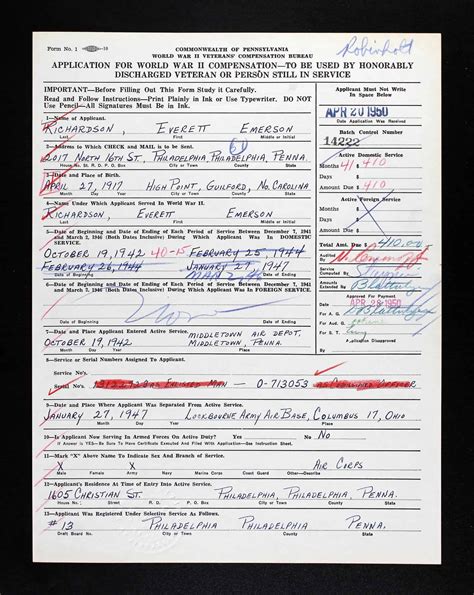 Form No. 1
COMMONWEALTH OF PENNSYLVANIA
WORLD WAR II VETERANS' COMPENSATION BUREAU
APPLICATION FOR WORLD WAR II COMPENSATION—TO BE USED BY HONORABLY
DISCHARGED VETERAN OR PERSON STILL IN SERVICE
IMPORTANT—Before Filling Out This Form Study it Carefully.
Read and Follow Instructions—Print Plainly in Ink or Use Typewriter. DO NOT
Use Pencil—All Signatures Must Be in Ink.
Applicant Must Not Write
In Space Below
APR 20 1950
Date Application Was Received
Batch Control Number
14222
1—Name of Applicant.
RICHARDSON, EVERETT EMERSON
Last First Middle or Initial
2—Address to Which CHECK and MAIL is to be Sent.
2017 NORTH 16TH ST, PHILADELPHIA, PHILADELPHIA, PENNA.
House No. St. R. D. P. O. Box City or Town County State
Active Domestic Service
Months 41 410
Days
Amount Due $ 410
3—Date and Place of Birth.
APRIL 27, 1917 HIGH POINT, GUILFORD, NO. CAROLINA
4—Name Under Which Applicant Served In World War II.
RICHARDSON, EVERETT EMERSON
Last First Middle or Initial
Active Foreign Service
Months
Days
Amount Due $
5—Date of Beginning and Date of Ending of Each Period of Service Between December 7, 1941
and March 2, 1946 (Both Dates Inclusive) During Which Applicant Was in DOMESTIC
SERVICE.
OCTOBER 19, 1942 40-15 FEBRUARY 25, 1944
FEBRUARY 26, 1944 JANUARY 27, 1947
Date of Beginning Date of Ending
Total Amt. Due $ 410.00
Audited By
Service Computed By
Amount Extended By
6—Date of Beginning and Date of Ending of Each Period of Service Between December 7, 1941
and March 2, 1946 (Both Dates Inclusive) During Which Applicant Was in FOREIGN SERVICE.
Date of Beginning Date of Ending
Approved For Payment
APR 28 1950
For A. G.
For Aud. G.
For S. T.
Application Disapproved
7—Date and Place Applicant Entered Active Service.
OCTOBER 19, 1942 MIDDLETOWN AIR DEPOT,
MIDDLETOWN, PENNA.
8—Service or Serial Numbers Assigned To Applicant.
Service No's.
Serial No's. ENLISTED MAN — O-713053
9—Date and Place Where Applicant Was Separated From Active Service.
JANUARY 27, 1947 LOCKBOURNE ARMY AIR BASE, COLUMBUS 17, OHIO
Month Day Year Place
10—Is Applicant Now Serving In Armed Forces On Active Duty? Yes No No
If Answer is YES—Be Sure To Have Certificate Executed And Filed With Application—See Instruction Sheet.
11—Mark "X" Above Name To Indicate Sex and Branch of Service.
X X AIR CORPS
Male Female Army Navy Marine Corps Coast Guard Other—Describe
12—Applicant's Residence At Time of Entry Into Active Service.
1605 CHRISTIAN ST. PHILADELPHIA, PHILADELPHIA, PENNA.
House No. Street R. D. P. O. Box City or Town County State
13—Applicant Was Registered Under Selective Service As Follows.
#13 PHILADELPHIA PHILADELPHIA PENNA.
Draft Board No. City or Town County State